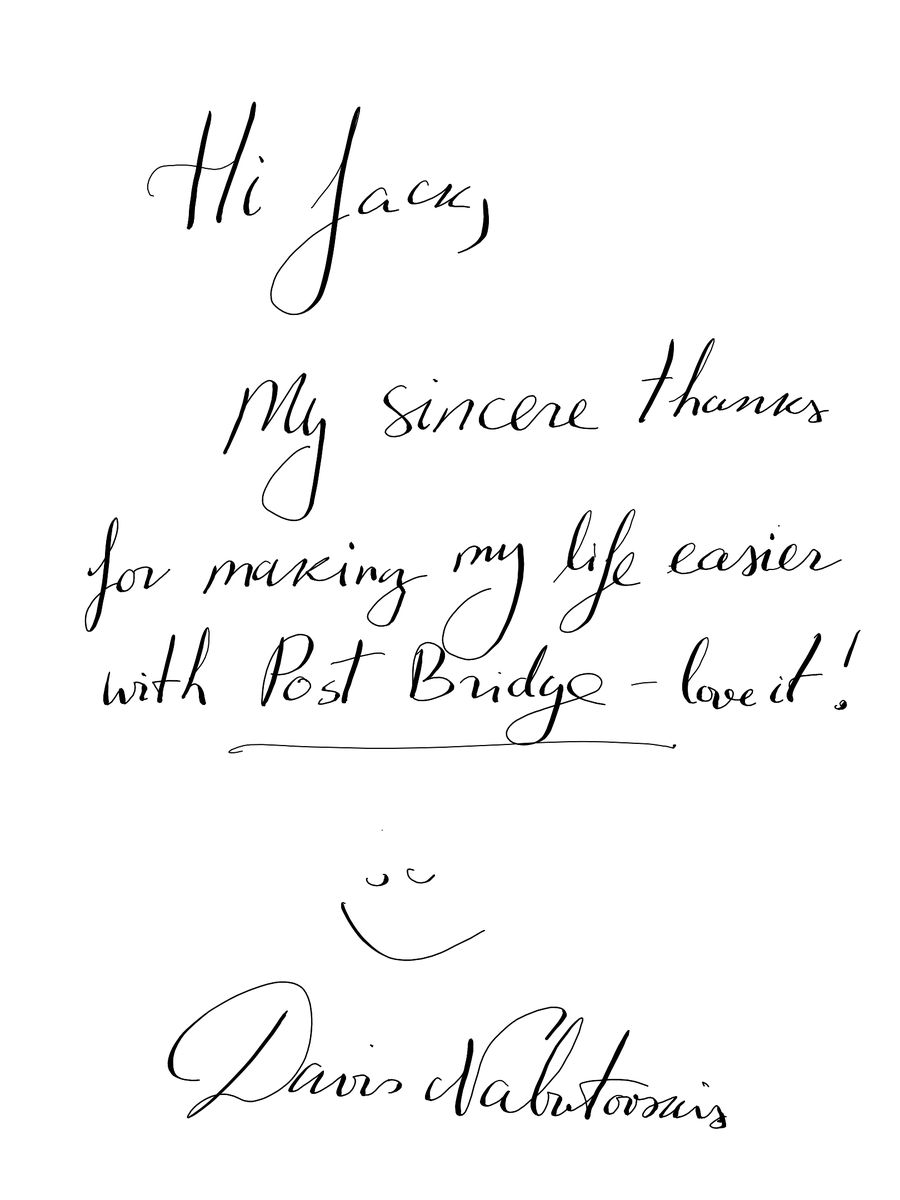 Hi Jack,
My sincere thanks
for making my life easier
with Post Bridge - love it!
Davis